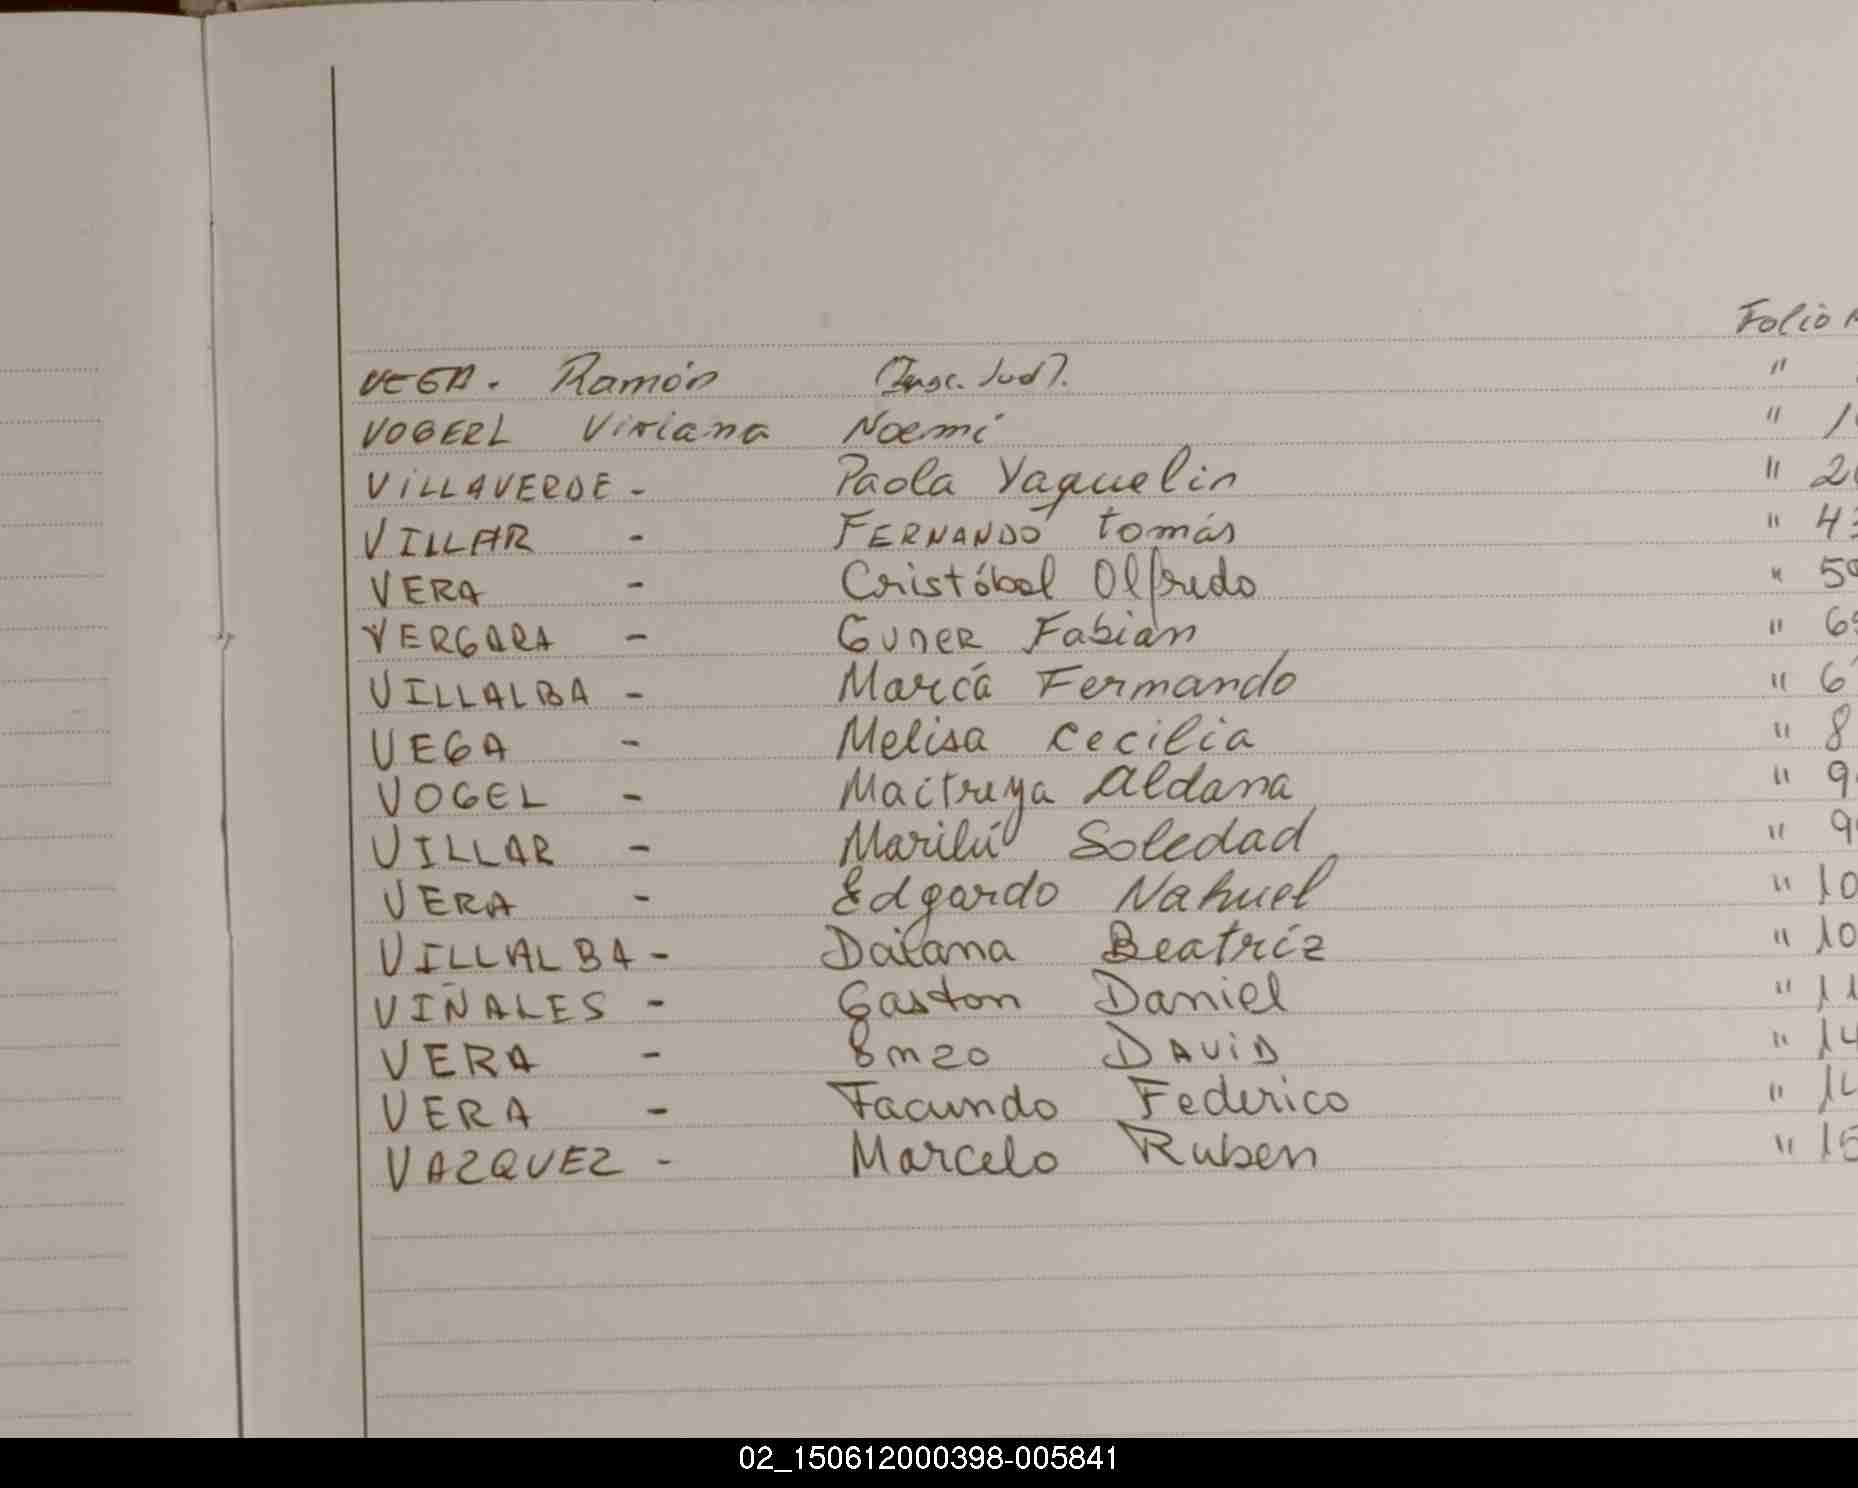 Folio
VEGA. Ramón (Insc. Jud). "
VOGERL Viviana Noemi " 1
VILLAVERDE - Paola Yaquelin " 2
VILLAR - FERNANDO tomás " 43
VERA - Cristóbal Olfredo " 59
VERGARA - GUNER Fabián " 6
VILLALBA - Fernando " 6
VEGA - Melisa Cecilia " 8
VOGEL - Maitreya Aldana " 9
VILLAR - Marilú Soledad " 9
VERA - Edgardo Nahuel " 10
VILLALBA - Daiana Beatriz " 10
VIÑALES - Gaston Daniel " 11
VERA - Enzo DAViD " 14
VERA - Facundo Federico " 14
VAZQUEZ - Marcelo Ruben " 15
02_150612000398-005841